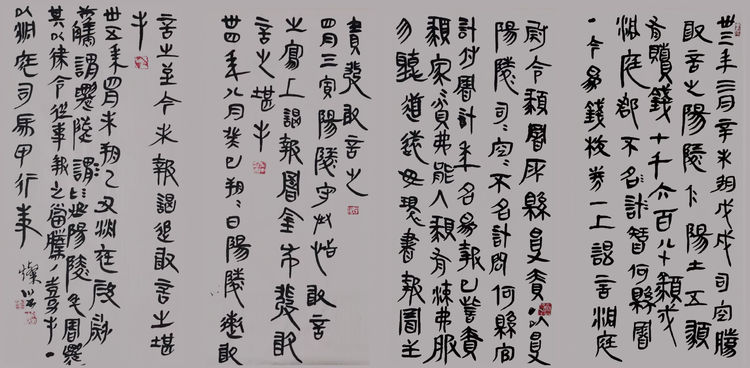 卅三年三月辛未朔戊戌司空騰
敢言之陽陵下陽士五頯
有贖錢七千六百八十頯戍
洞庭郡不名計智何縣署
·今為錢校券一上謁言洞庭
尉令頯署所縣受責以受
陽陵司〻空〻不名計問何縣官
計付署計年名為報已訾責
頯家〻貧弗能入頯有辭弗服
勿聽道遠毋環書報署主
責發敢言之
四月壬寅陽陵守丞恬敢言
之寫上謁報署金布發敢
言之堪手
卅四年八月癸巳朔〻日陽陵遬敢
言之至今未報謁追敢言之堪
手
卅五年四月己未朔乙丑洞庭叚尉
觿謂遷陵丞陽陵卒署遷
其以律令從事報之當騰〻嘉手·
以洞庭司馬印行事 燦